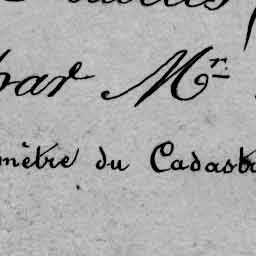 par Mr
mètre du Cadastr